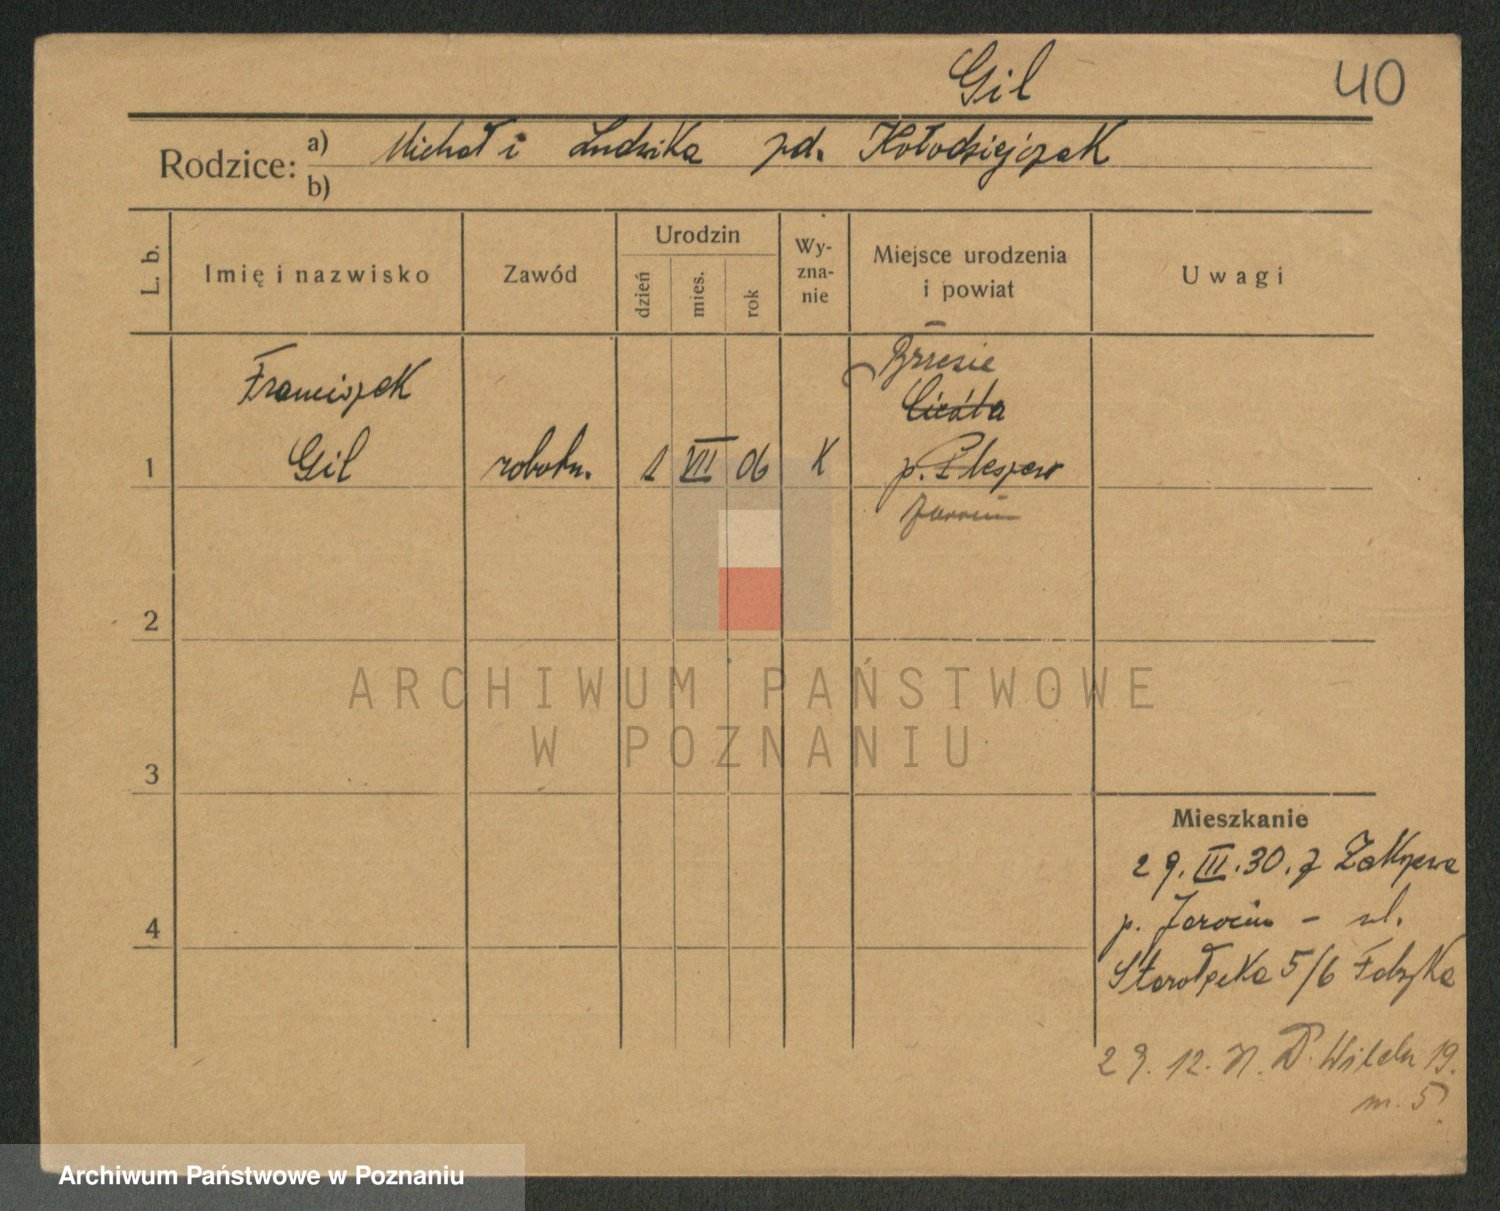 Gil 40
Rodzice: a) Michał i Ludwika pd. Kołodziejczak
b)
L. b. Imię i nazwisko Zawód Urodzin dzień mies. rok Wy-zna-nie Miejsce urodzenia i powiat Uwagi
Brzezie
Franciszek
1 Gil robotn. 1 VII 06 K p. Pleszew
Jarocin
2
ARCHIWUM PAŃSTWOWE
W POZNANIU
3
Mieszkanie
29. III. 30. z Zakrzewa
4 p. Jarocin - ul.
Starołęcka 5/6 Fabryka
29. 12. D. Wilda 19.
m. 5.
Archiwum Państwowe w Poznaniu